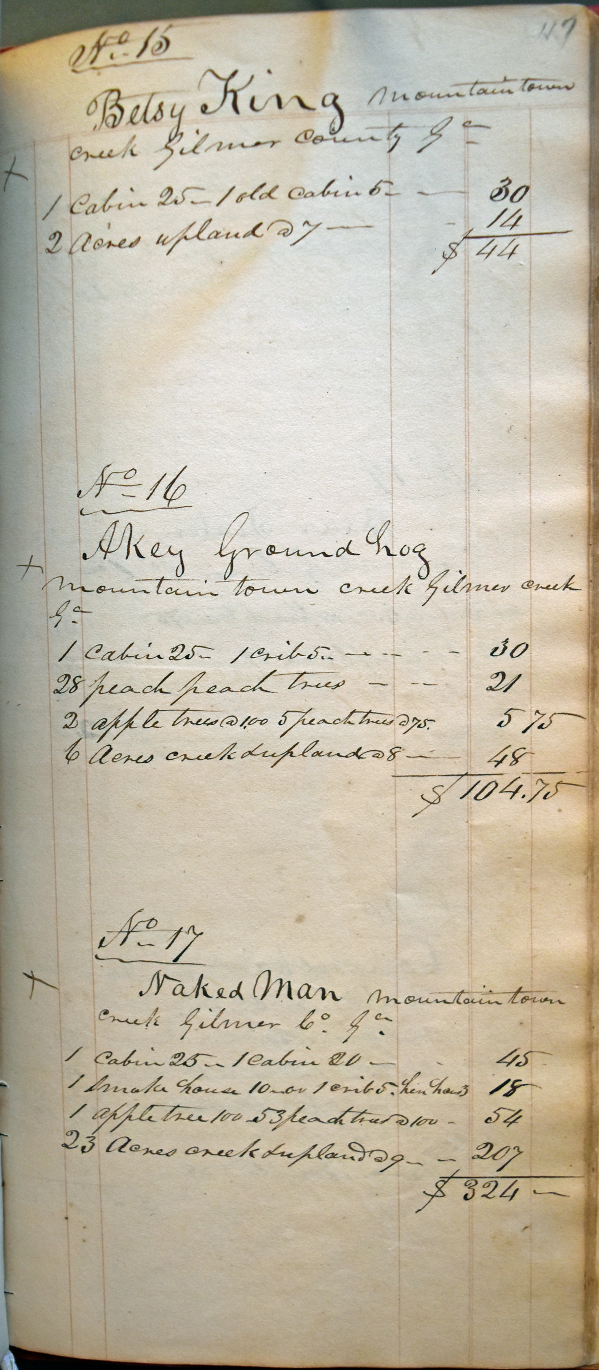 47
No. 15
Betsy King mountain town
creek Gilmer county Ga
1 Cabin 25 - 1 old cabin 5 - — 30
2 Acres upland @ 7 — - 14
$ 44
No. 16
Akey Ground hog
mountain town creek Gilmer creek
Ga
1 cabin 25 - 1 crib 5 - — - - - 30
28 peach peach trees - - - 21
2 apple trees @ 100 5 peach trees @ 75. 5 75
6 Acres creek & upland @ 8 — 48
$ 104.75
No. 17
Naked Man mountain town
creek Gilmer Co. Ga.
1 Cabin 25 - 1 Cabin 20 - - 45
1 Smoke house 10.00 1 crib 5. hen hous 3 18
1 apple tree 100 53 peach trees @ 100 - 54
23 Acres creek & upland @ 9 - - 207
$ 324 —